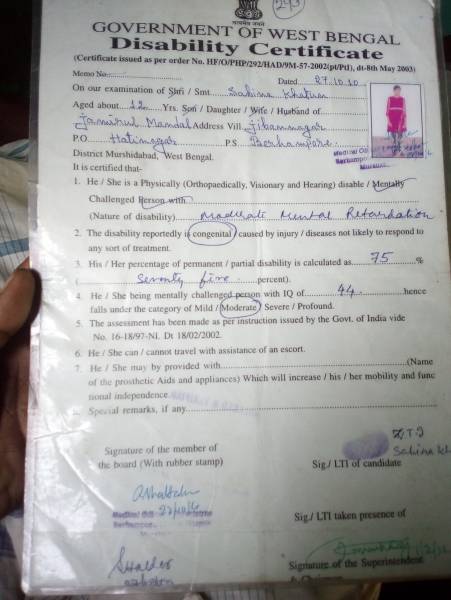 243
सत्यमेव जयते
GOVERNMENT OF WEST BENGAL
Disability Certificate
(Certificate issued as per order No. HF/O/PHP/292/HAD/9M-57-2002(pt/PtI), dt-8th May 2003)
Memo No. Dated 27.10.10
On our examination of Shri / Smt. Sabina Khatun
Aged about 12 Yrs. Son / Daughter / Wife / Husband of
Jamirul Mandal Address Vill. Jibannagar
P.O. Hatinagar P S Berhampore
District Murshidabad, West Bengal.
It is certified that-
1. He / She is a Physically (Orthopaedically, Visionary and Hearing) disable / Mentally
Challenged Person with
(Nature of disability) Moderate Mental Retardation
2. The disability reportedly is congenital / caused by injury / diseases not likely to respond to
any sort of treatment.
3. His / Her percentage of permanent / partial disability is calculated as 75 %
( Seventy five percent).
4. He / She being mentally challenged person with IQ of 44 hence
falls under the category of Mild / Moderate / Severe / Profound.
5. The assessment has been made as per instruction issued by the Govt. of India vide
No. 16-18/97-NI. Dt 18/02/2002.
6. He / She can / cannot travel with assistance of an escort.
7. He / She may by provided with (Name
of the prosthetic Aids and appliances) Which will increase / his / her mobility and func
tional independence.
Special remarks, if any
Signature of the member of
the board (With rubber stamp)
L.T.I
Sabina Kh
Sig / LTI of candidate
Medical
Berhampore
Sig / LTI taken presence of
Shalder
Signature of the Superintendent
& Chairman